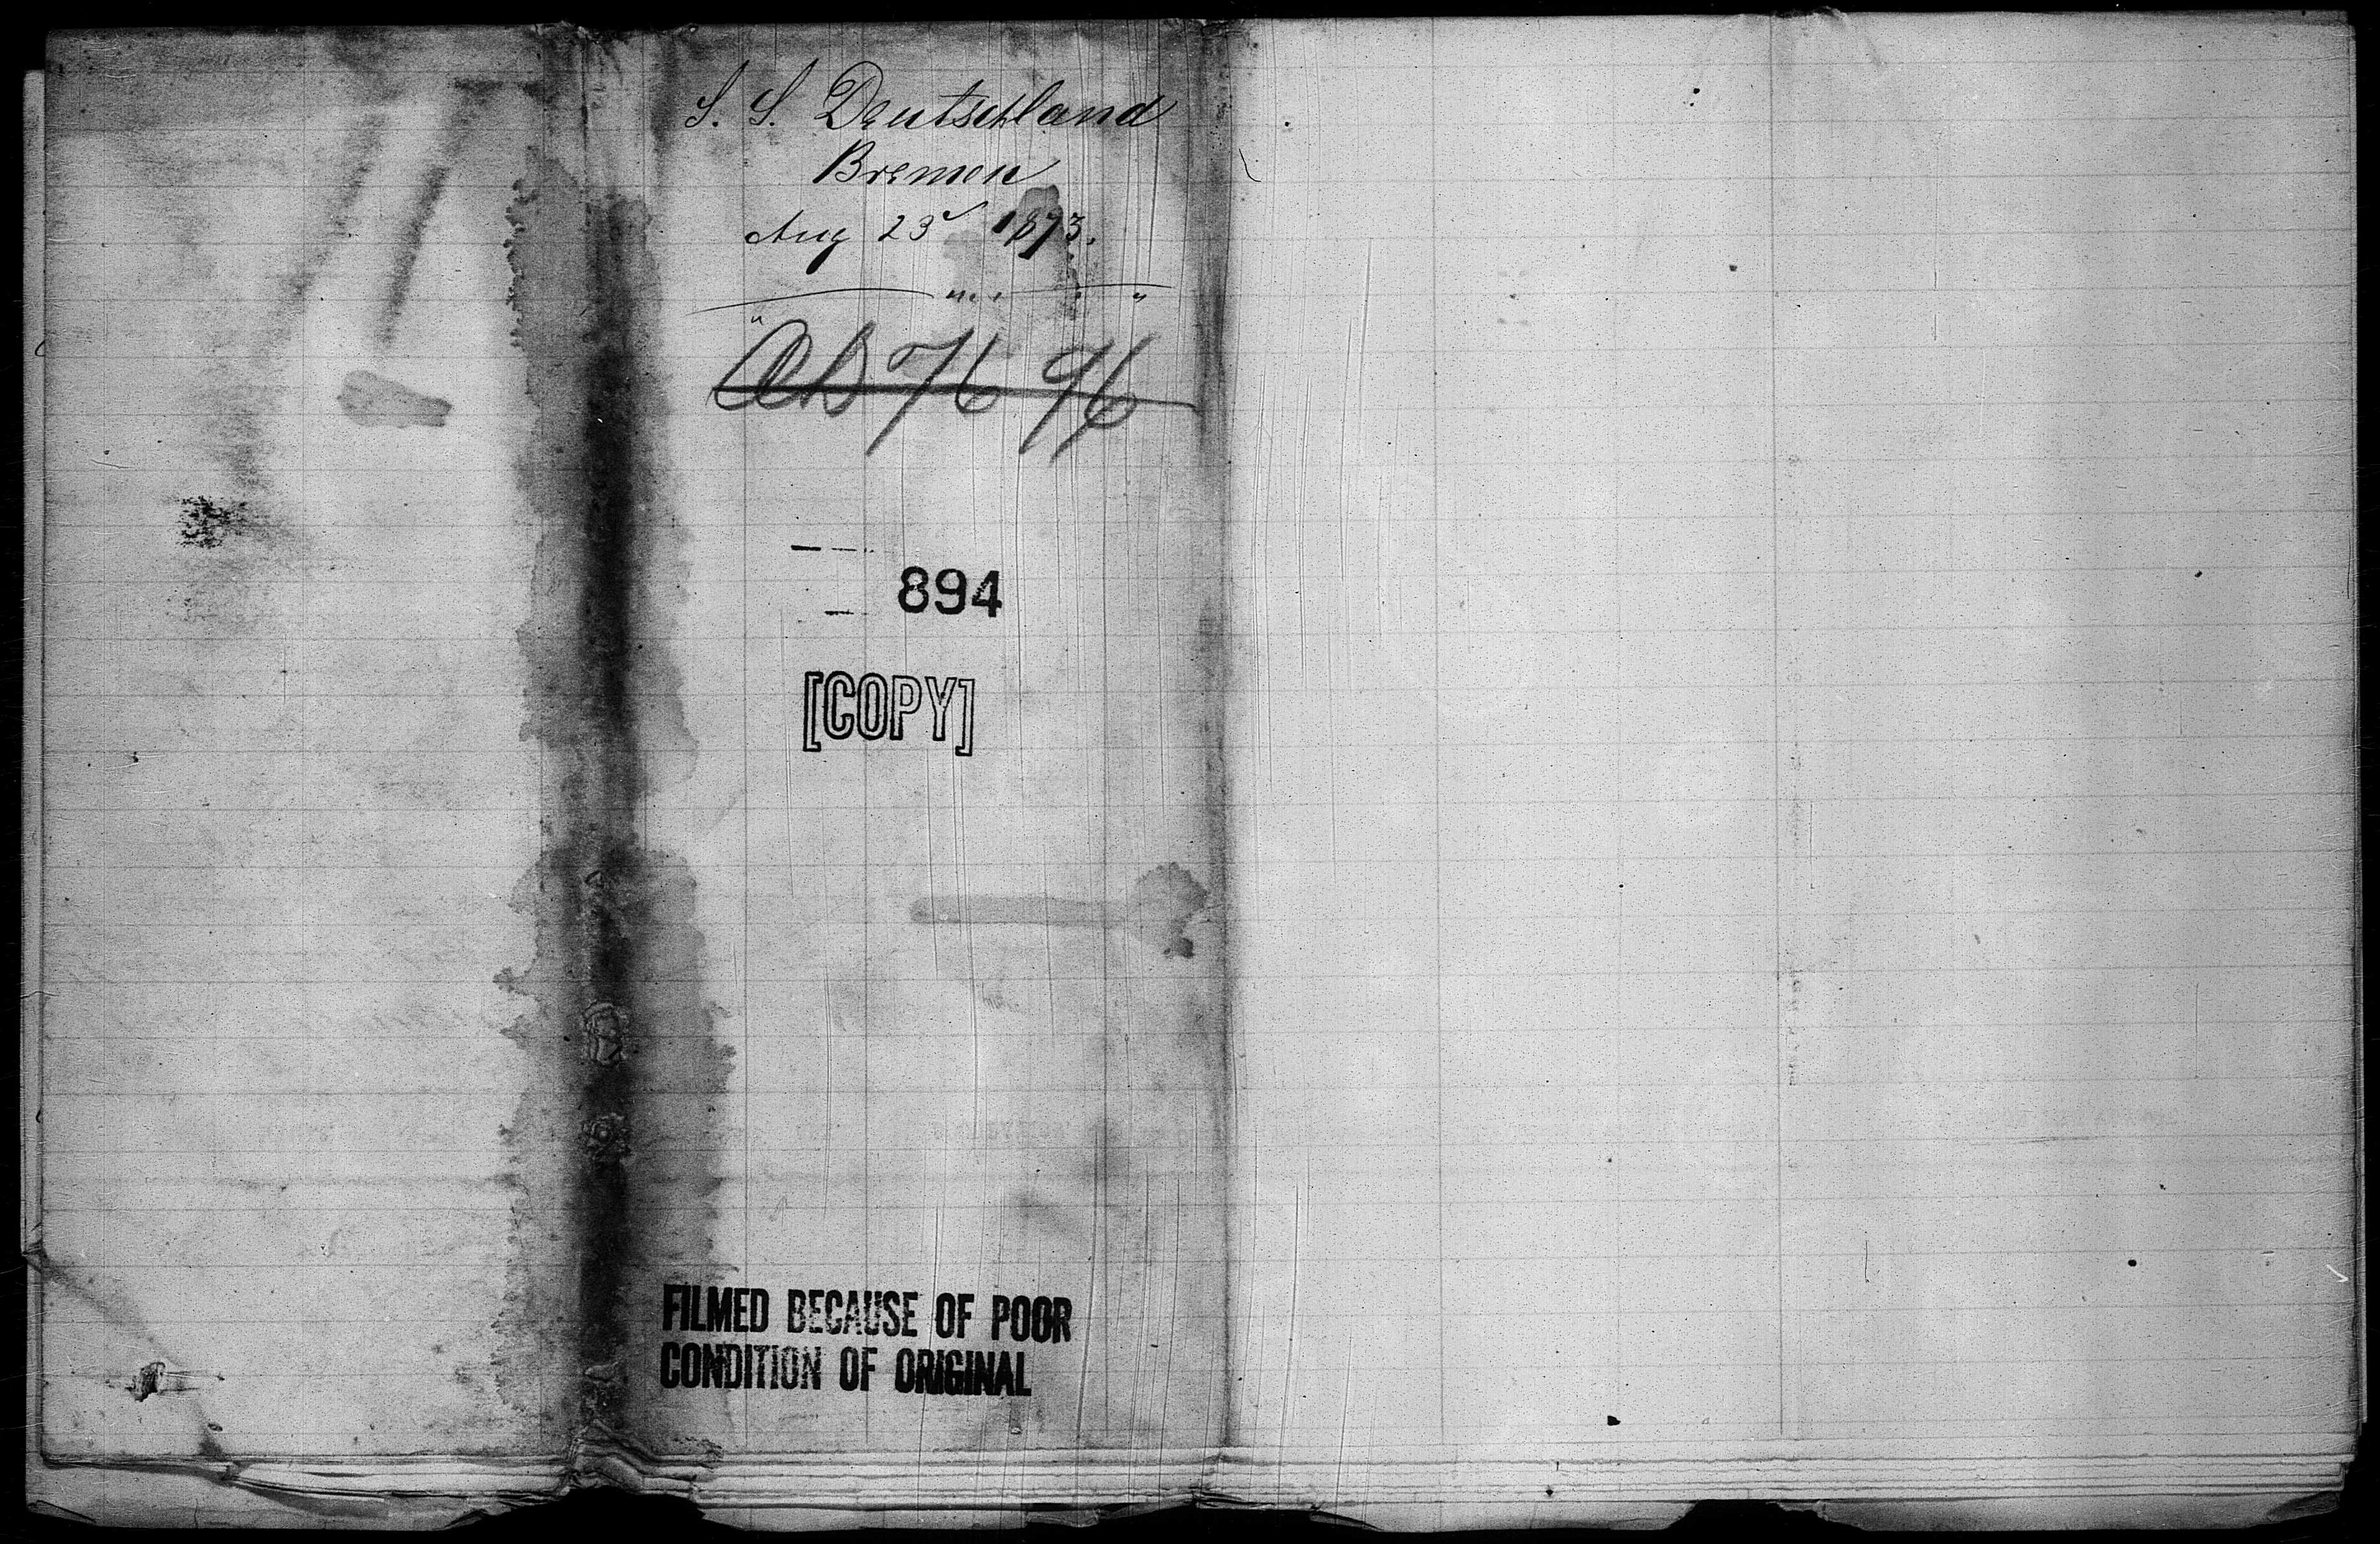 S. S. Deutschland
Bremen
Aug 23d 1873.
894
[COPY]
FILMED BECAUSE OF POOR
CONDITION OF ORIGINAL